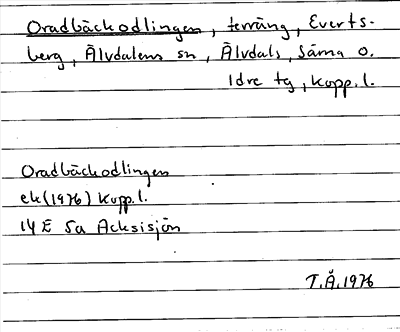 Oradbäckodlingen, terräng, Everts-
berg, Älvdalens sn, Älvdals, Särna o.
Idre tg, Kopp. l.
Oradbäckodlingen
ek (1976) Kopp. l.
14 E 5a Acksisjön
T. Å. 1976